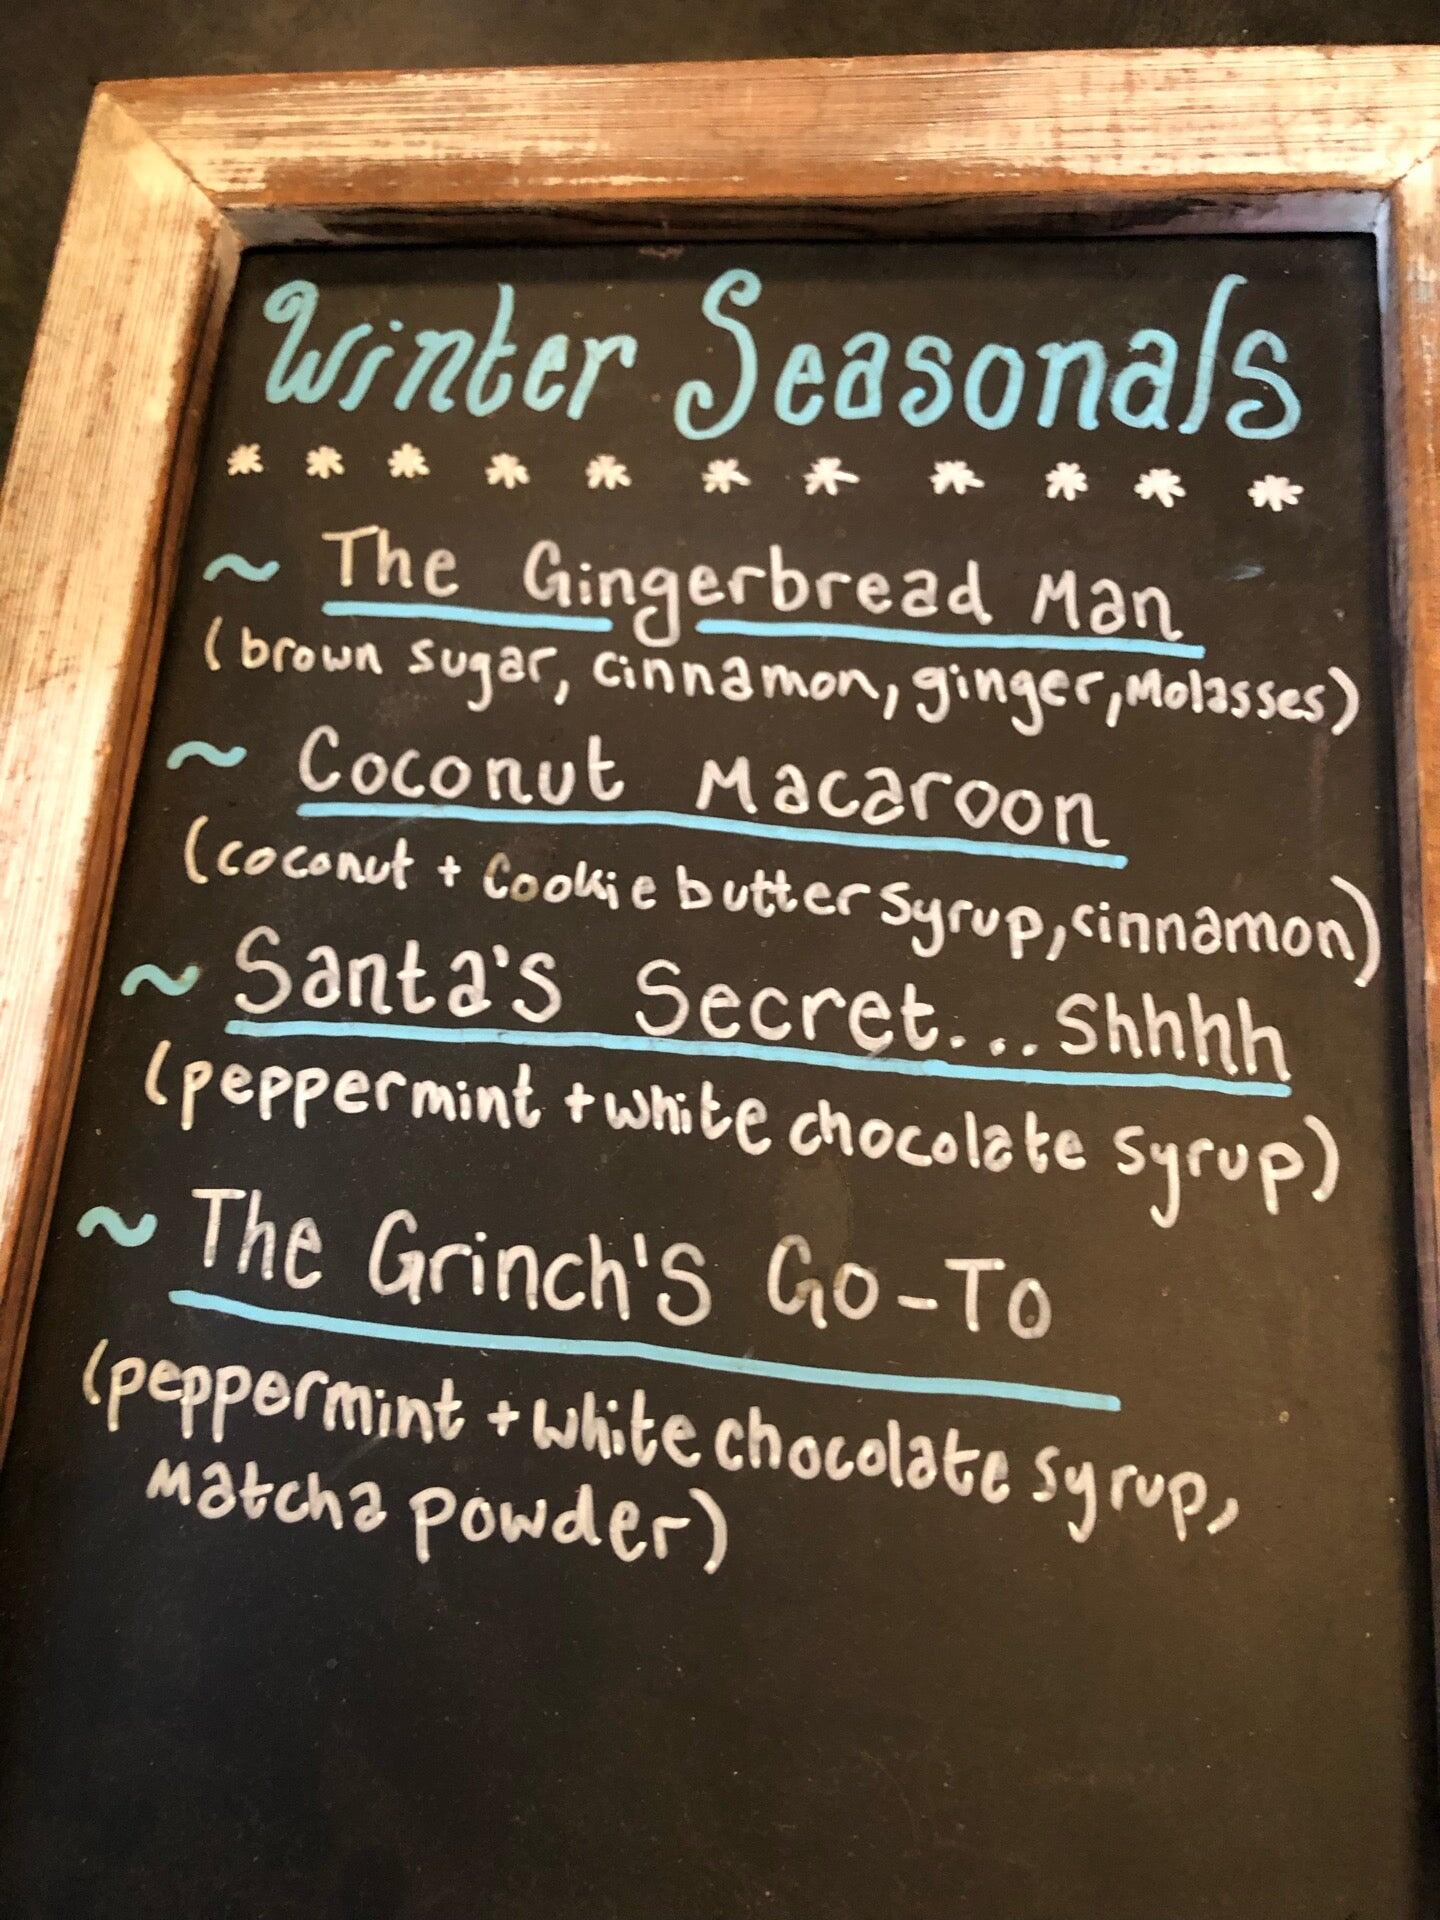 Winter Seasonals
* * * * * * * * * * *
~ The Gingerbread Man
(brown sugar, cinnamon, ginger, Molasses)
~ Coconut Macaroon
(coconut + Cookie butter syrup, cinnamon)
~ Santa's Secret... Shhhh
(peppermint + white chocolate syrup)
~ The Grinch's Go-To
(peppermint + white chocolate syrup,
Matcha powder)